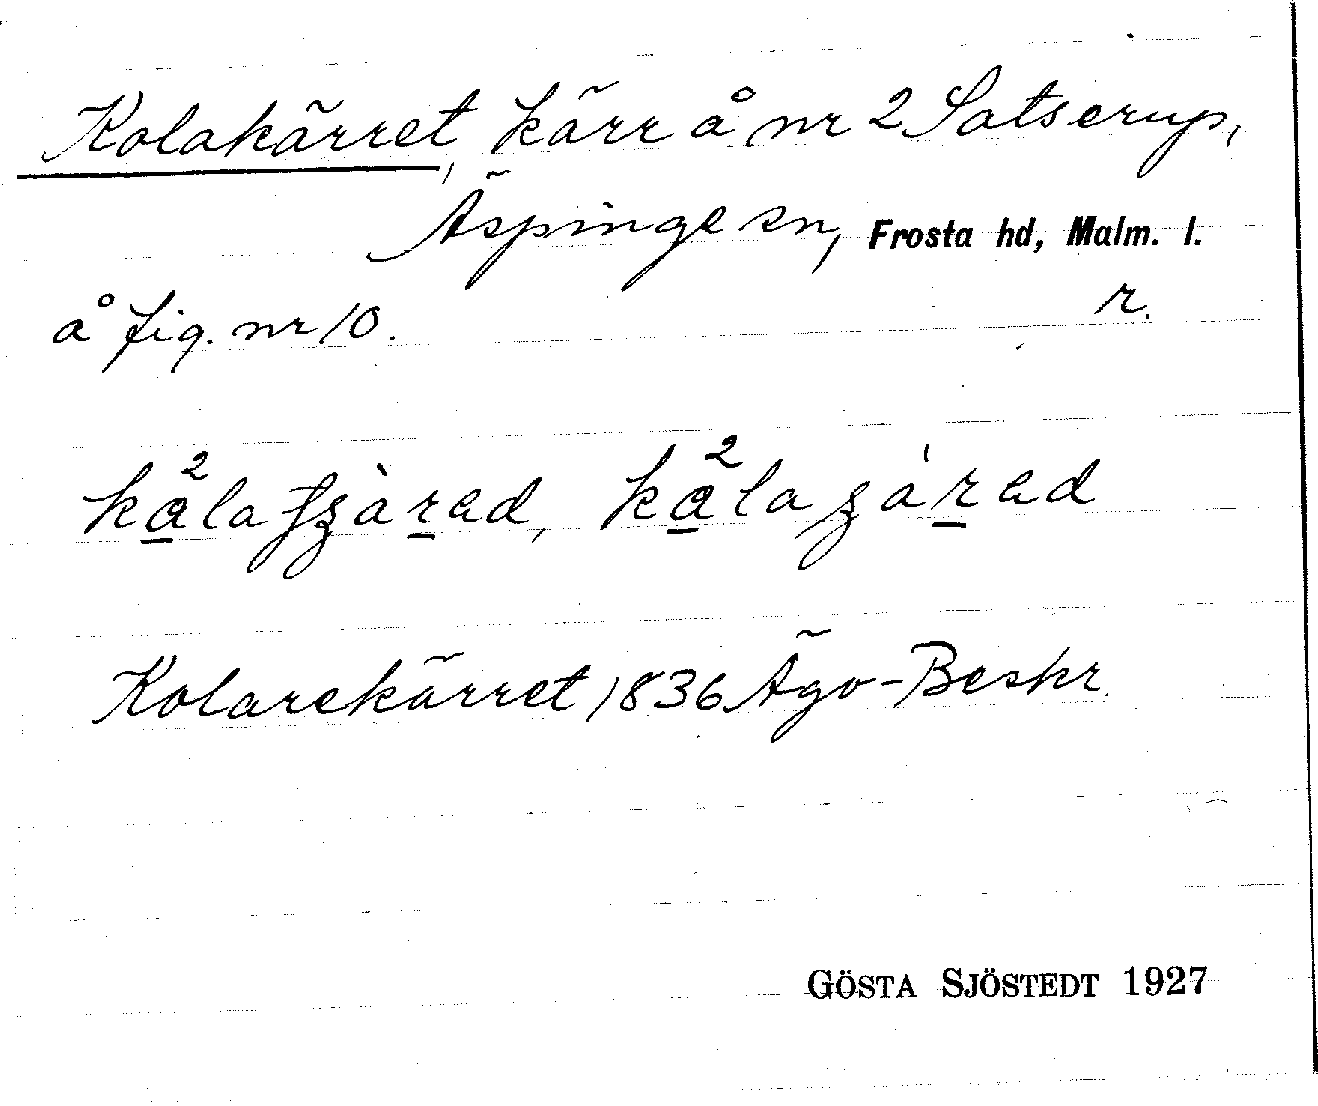 Kolakärret, kärr å nr 2 Satserup,
Äspinge sn, Frosta hd, Malm. l.
å fig. nr 10. r.
Kolarekärret 1836 Ägo-Beskr.
GÖSTA SJÖSTEDT 1927